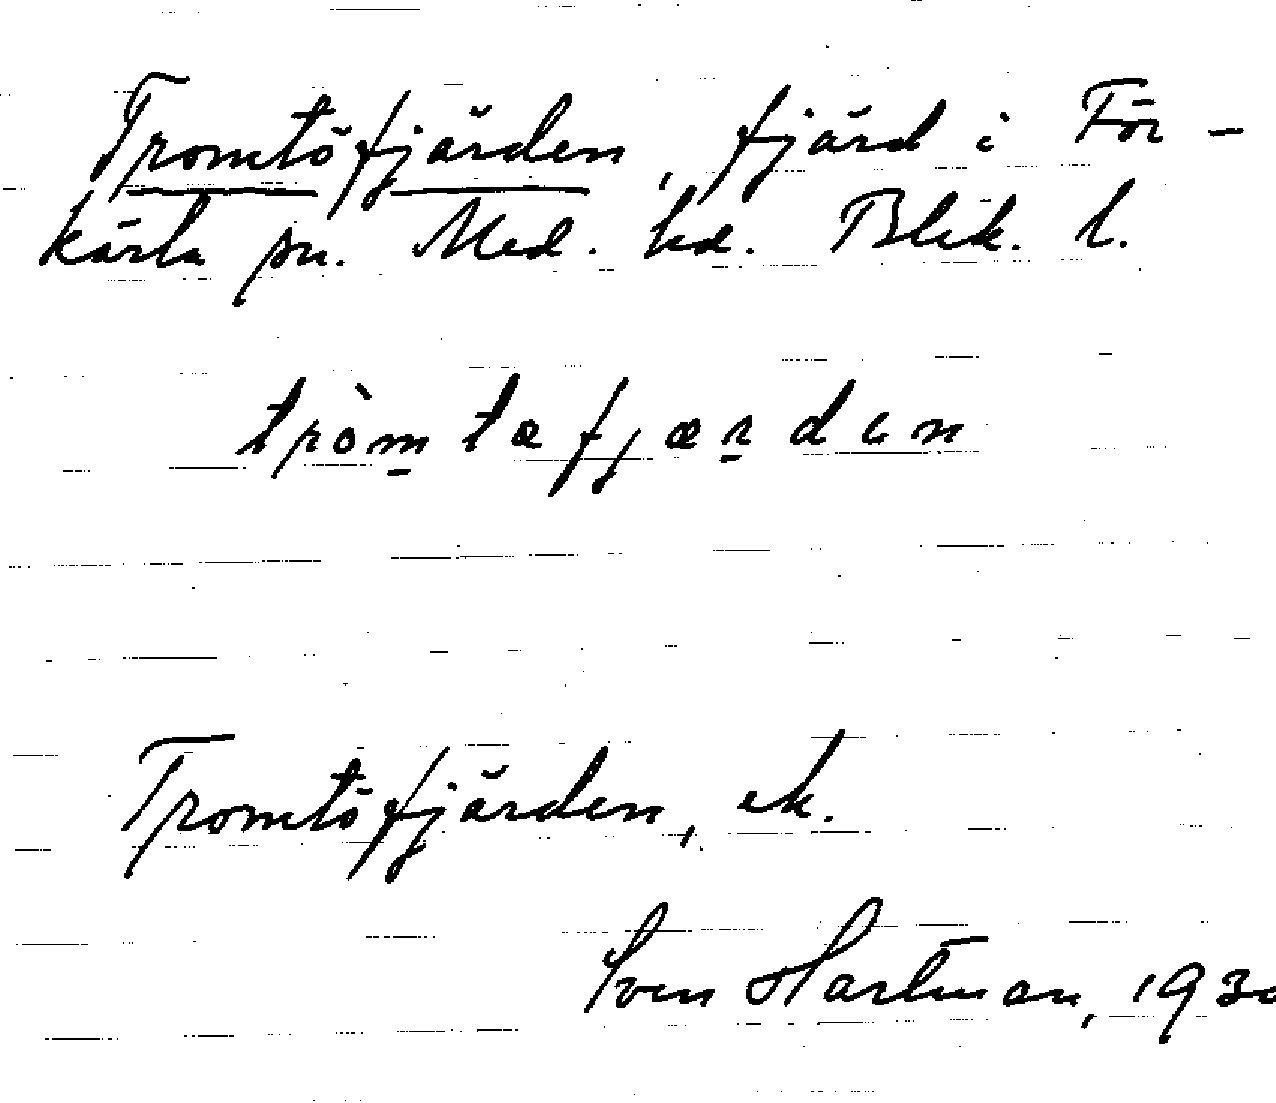 Tromtöfjärden, fjärd i För-
kärla sn. Med. hd. Blek. l.
tròmtəfjærdən
Tromtöfjärden, ek.
Sven Hartman, 1930